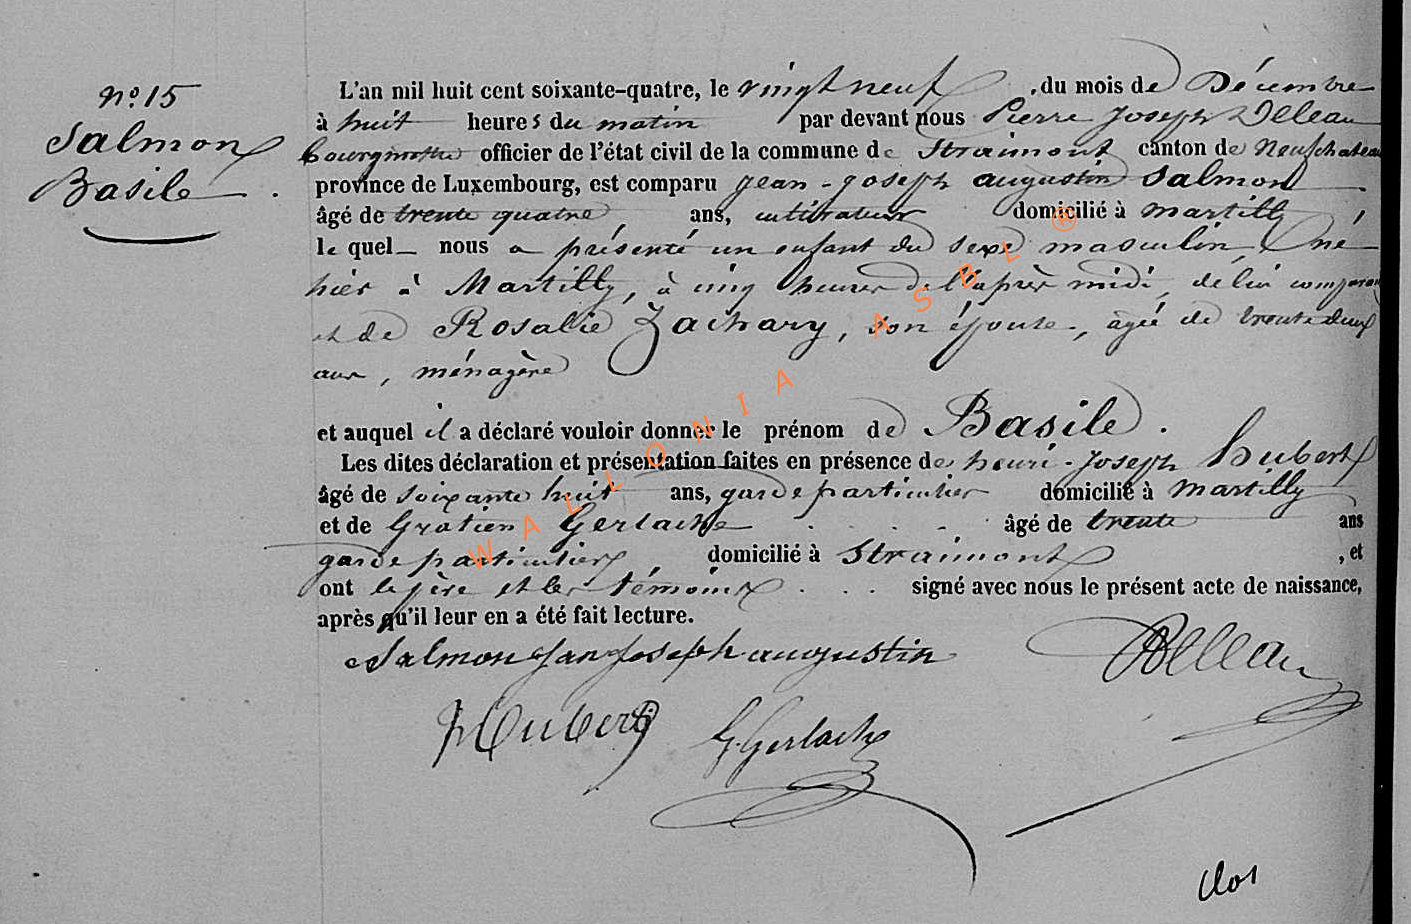 n° 15
Salmon
Basile.
L'an mil huit cent soixante-quatre, le vingt neuf, du mois de Décembre
à huit heures du matin par devant nous Pierre Joseph Delleau
bourgmestre officier de l'état civil de la commune de Straimont canton de Neufchateau
province de Luxembourg, est comparu Jean-Joseph augustin Salmon
âgé de trente quatre, ans, cultivateur domicilié à martilly,
lequel nous a présenté un enfant du sexe masculin, né
hier à Martilly, à cinq heures de l'après midi, de lui comparant
et de Rosalie Zachary, son épouse, âgée de trente deux
ans, ménagère
et auquel il a déclaré vouloir donner le prénom de Basile.
Les dites déclaration et présentation faites en présence de henri-Joseph hubert
âgé de soixante huit ans, garde particulier domicilié à martilly
et de Gratien Gerlache . . . . âgé de trente ans
garde particulier, domicilié à Straimont, et
ont le père et les témoins . . . signé avec nous le présent acte de naissance,
après qu'il leur en a été fait lecture.
Salmon Jan Joseph augustin
PDelleau
HHubert
G. Gerlache
clos
WALLONIA ASBL ®